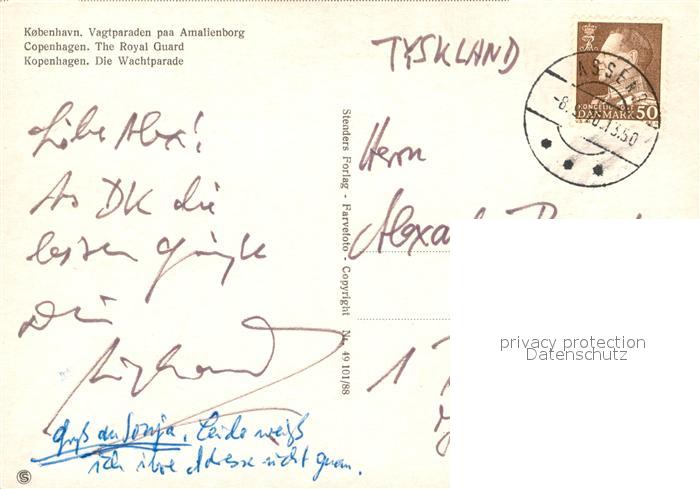 København. Vagtparaden paa Amalienborg
Copenhagen. The Royal Guard
Kopenhagen. Die Wachtparade
TYSKLAND
KONGELIG POST
DANMARK 50
ASSENS
13.50
Stenders Forlag - Farvefoto - Copyright Nr. 49 101/88
Liebe Alex!
Aus DK die
besten Grüße
Dein
Herrn
Gruß an Sonja. Leider weiß
ich ihre Adresse nicht genau.
privacy protection
Datenschutz
S